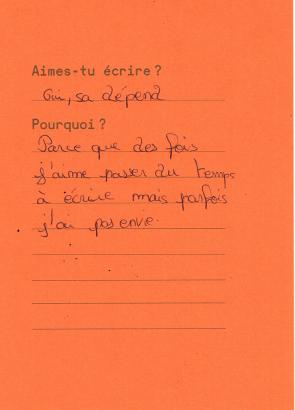 Aimes-tu écrire ?
Oui, sa dépend
Pourquoi ?
Parce que des fois
j'aime passer du temps
à écrire mais parfois
j'ai pas envie.